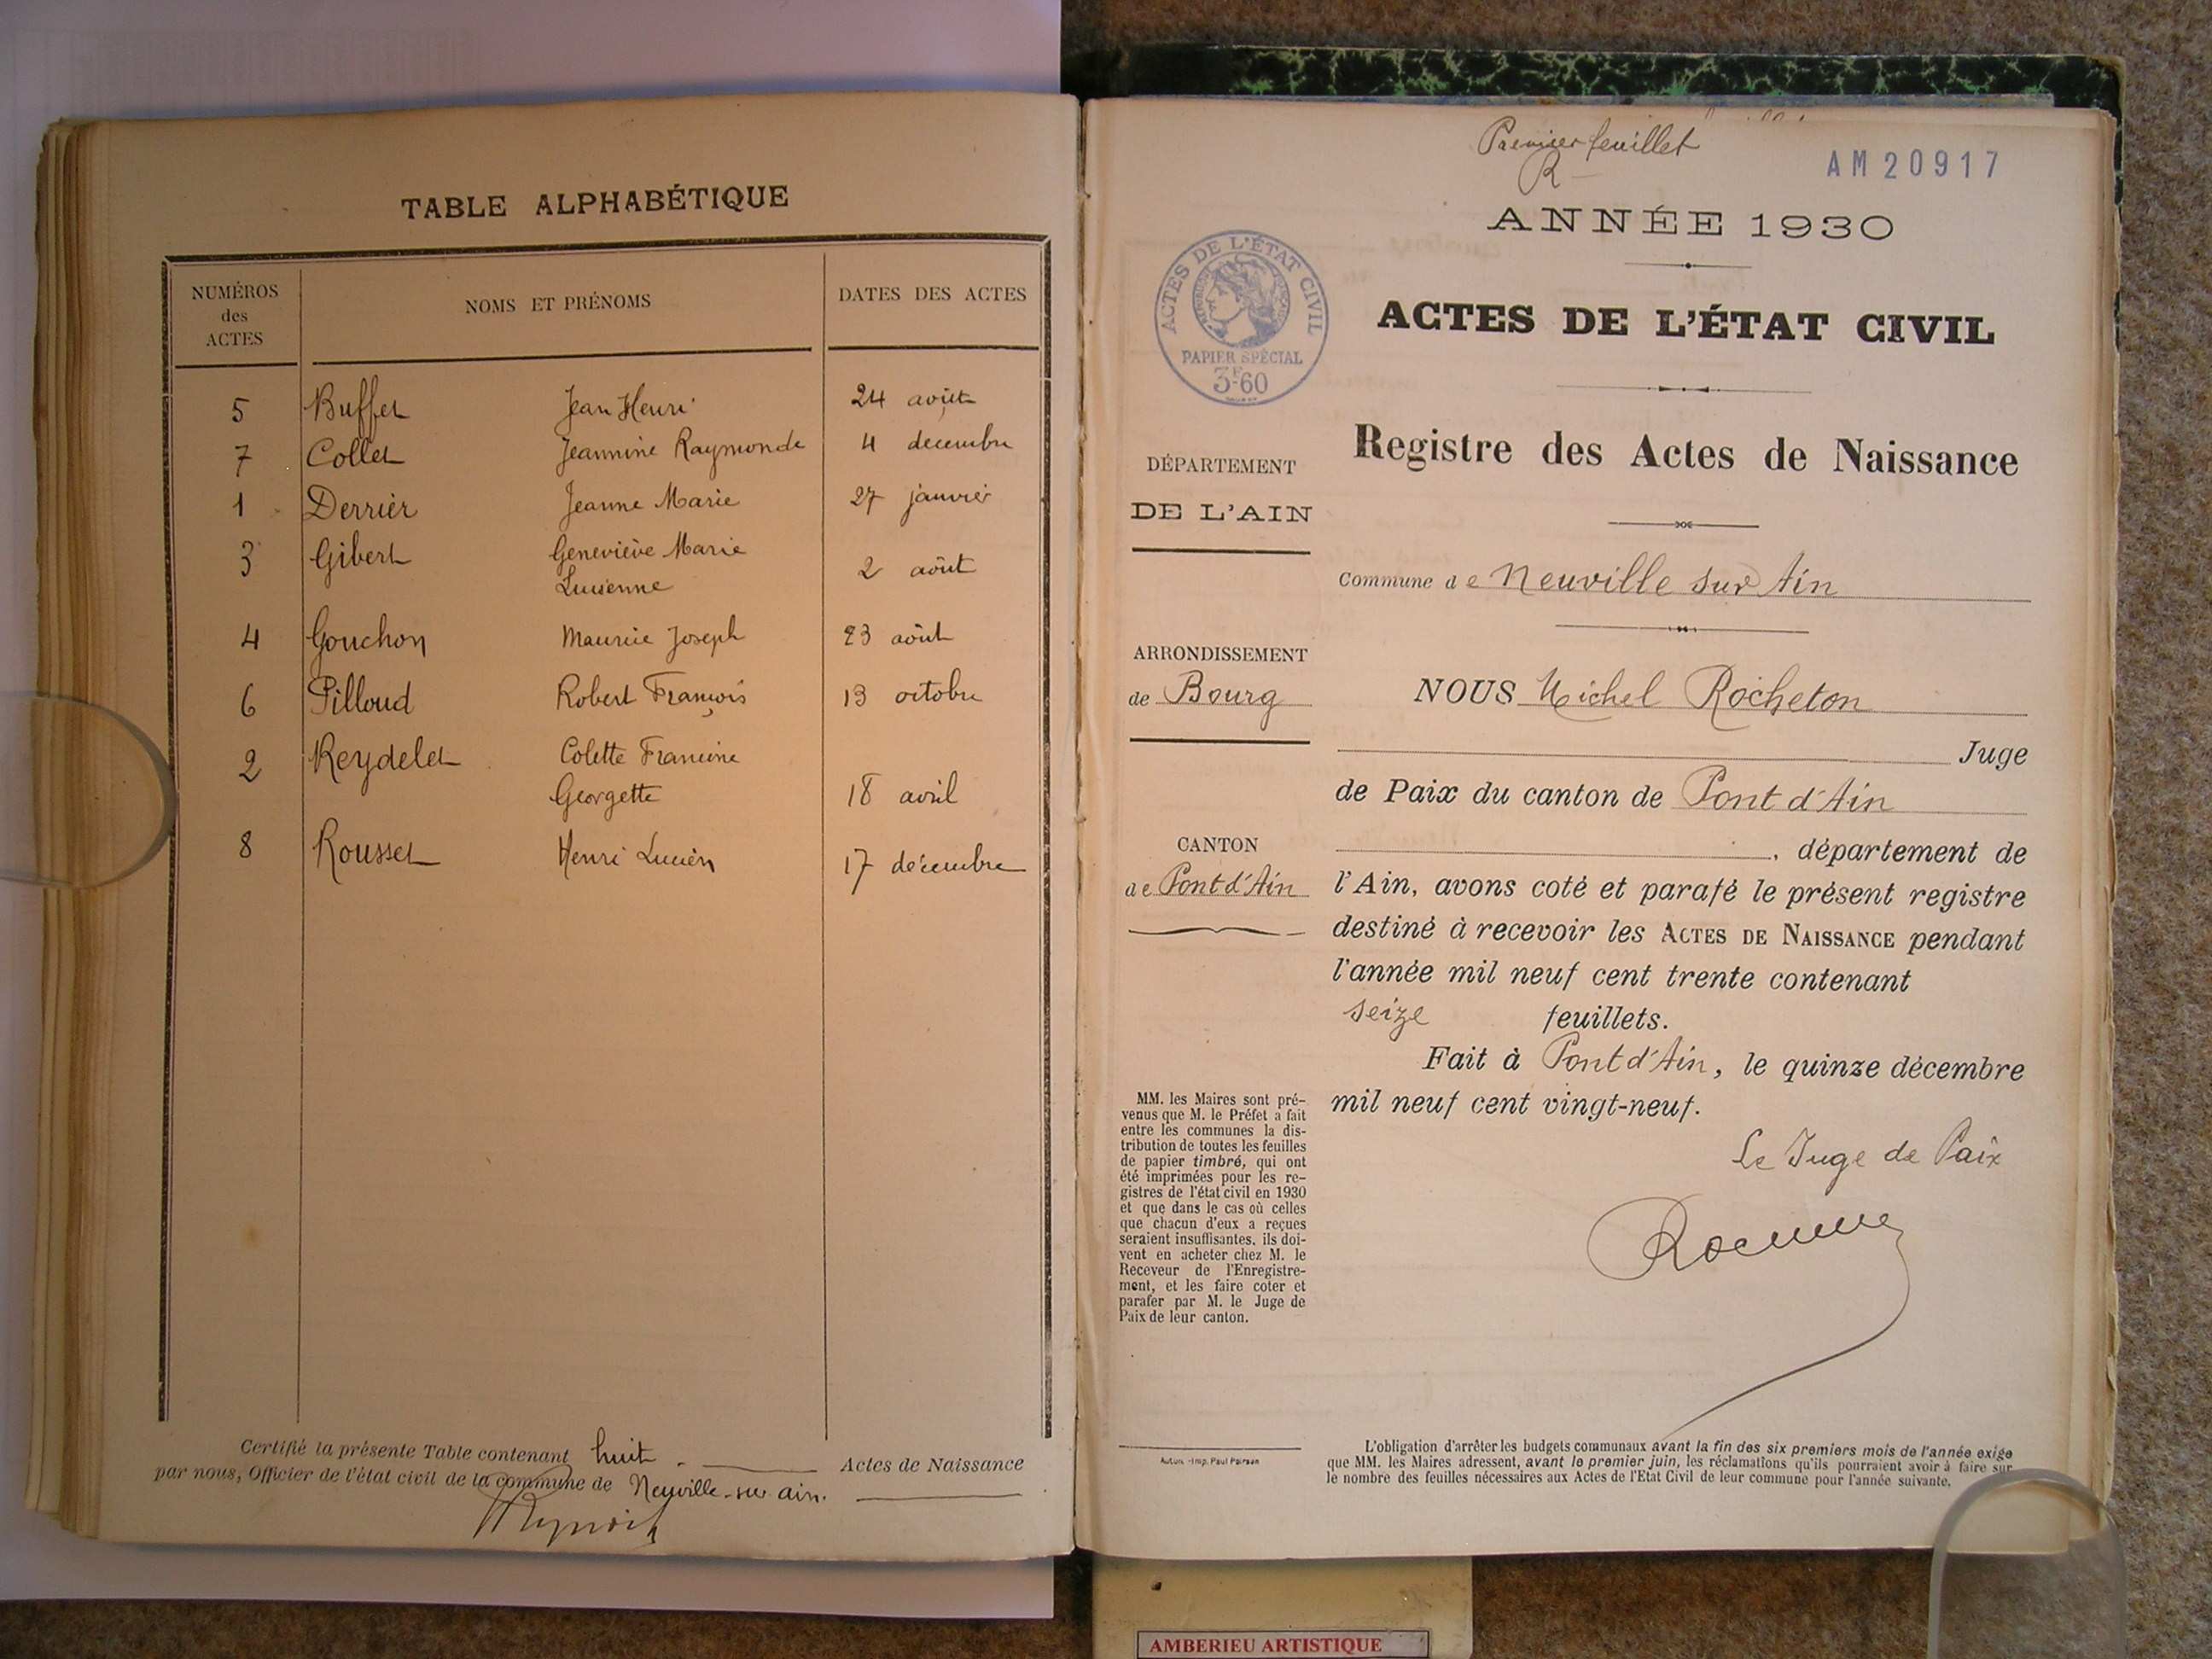 TABLE ALPHABÉTIQUE
NUMÉROS des ACTES
NOMS ET PRÉNOMS
DATES DES ACTES
5 Buffet Jean Henri 24 août
7 Collet Jeannine Raymonde 4 décembre
1 Derrier Jeanne Marie 27 janvier
3 Gibert Geneviève Marie
Lucienne 2 août
4 Gouchon Maurice Joseph 23 août
6 Pilloud Robert François 13 octobre
2 Reydelet Colette Francine
Georgette 18 avril
8 Rousset Henri Lucien 17 décembre
Certifié la présente Table contenant huit Actes de Naissance
par nous, Officier de l'état civil de la commune de Neuville-sur ain.
Premier feuillet
R
AM 20917
ANNÉE 1930
ACTES DE L'ÉTAT CIVIL
PAPIER SPÉCIAL
3F60
ACTES DE L'ÉTAT CIVIL
Registre des Actes de Naissance
DÉPARTEMENT
DE L'AIN
Commune de Neuville sur Ain
ARRONDISSEMENT
de Bourg
CANTON
de Pont d'Ain
NOUS Michel Rocheton
Juge
de Paix du canton de Pont d'Ain
, département de
l'Ain, avons coté et parafé le présent registre
destiné à recevoir les ACTES DE NAISSANCE pendant
l'année mil neuf cent trente contenant
seize feuillets.
Fait à Pont d'Ain, le quinze décembre
mil neuf cent vingt-neuf.
Le Juge de Paix
MM. les Maires sont pré-
venus que M. le Préfet a fait
entre les communes la dis-
tribution de toutes les feuilles
de papier timbré, qui ont
été imprimées pour les re-
gistres de l'état civil en 1930
et que dans le cas où celles
que chacun d'eux a reçues
seraient insuffisantes, ils doi-
vent en acheter chez M. le
Receveur de l'Enregistre-
ment, et les faire coter et
parafer par M. le Juge de
Paix de leur canton.
L'obligation d'arrêter les budgets communaux avant la fin des six premiers mois de l'année exige
que MM. les Maires adressent, avant le premier juin, les réclamations qu'ils pourraient avoir à faire sur
le nombre des feuilles nécessaires aux Actes de l'Etat Civil de leur commune pour l'année suivante.
AMBERIEU ARTISTIQUE